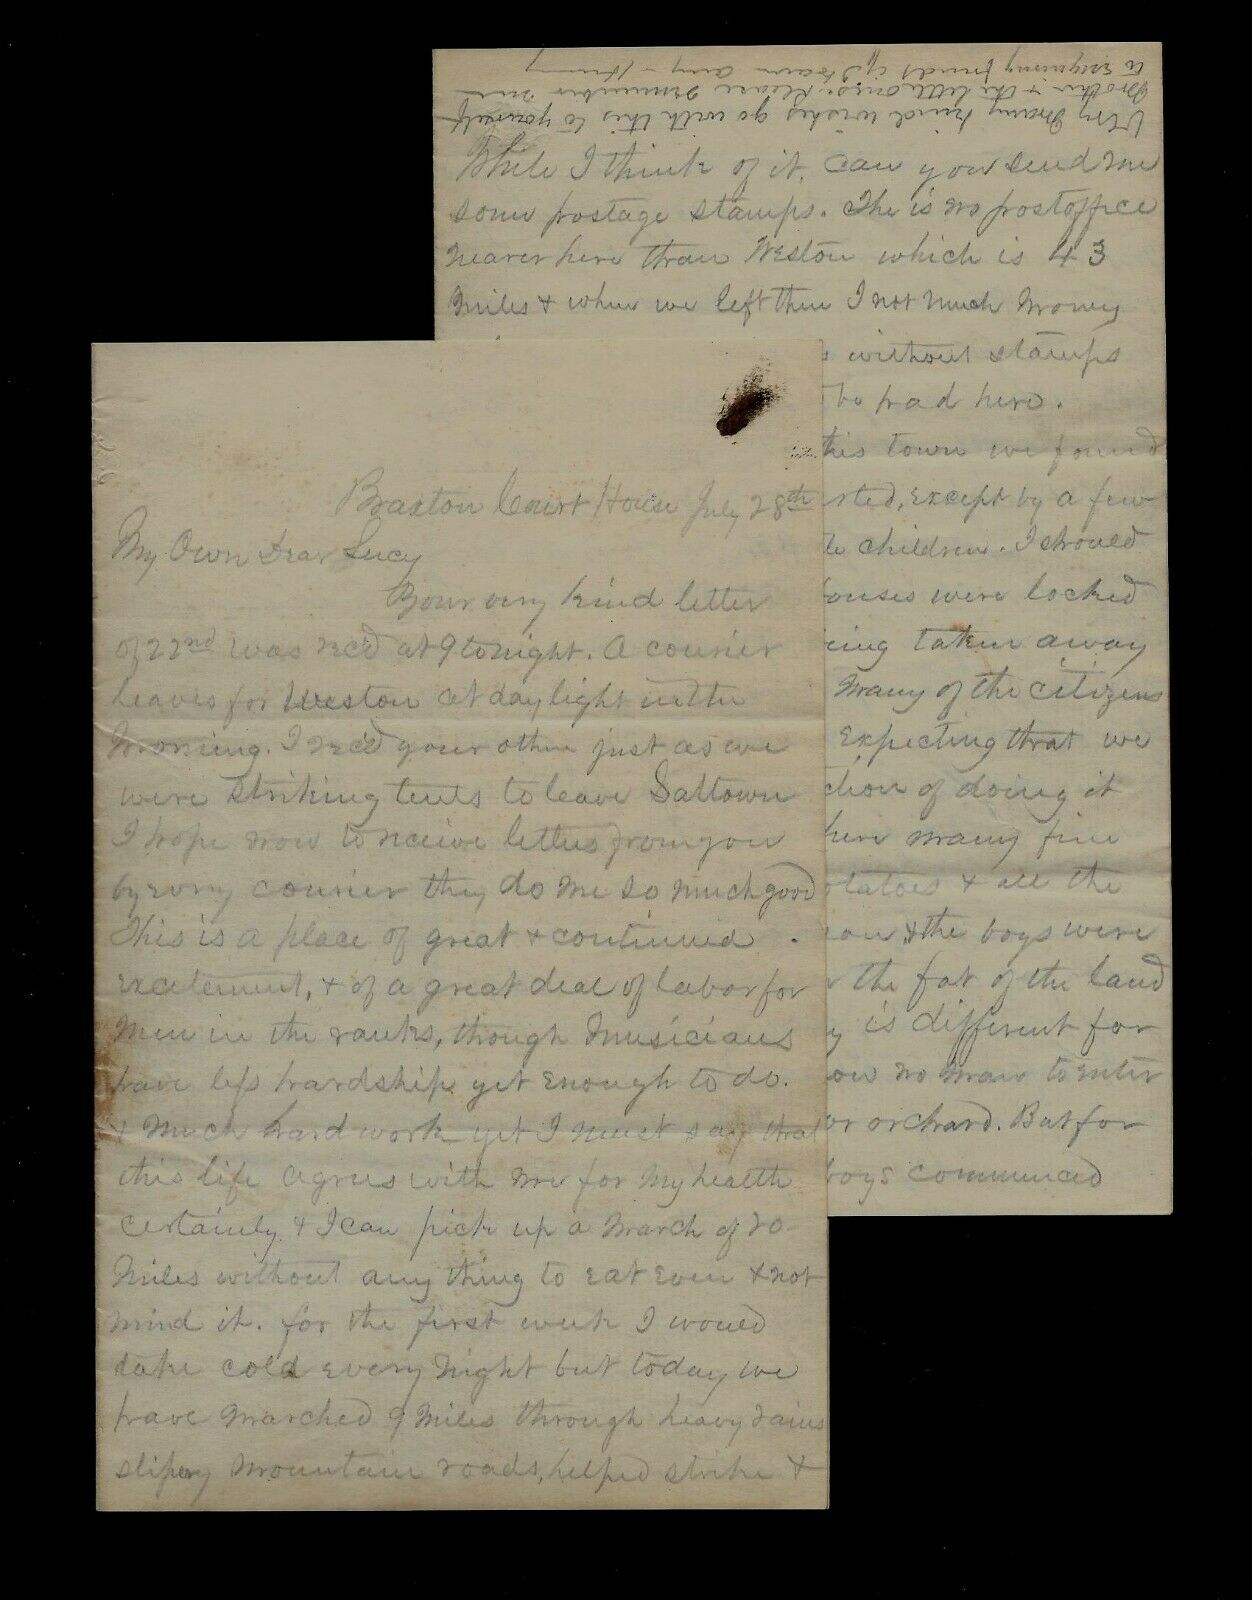 Braxton Court House July 28th
My Own Dear Lucy
Your very kind letter
of 22nd was rec'd at 9 tonight. A courier
leaves for Weston at daylight in the
morning. I rec'd your other just as we
were striking tents to leave Saltown
I hope now to receive letters from you
by every courier they do me so much good
This is a place of great & continued
excitement, & of a great deal of labor for
men in the ranks, though Musicians
have less hardships yet enough to do.
& much hard work yet I must say that
this life agrees with me for my health
certainly & I can pick up a march of 20
miles without any thing to eat even & not
mind it. for the first week I would
take cold every night but today we
have marched 9 miles through heavy rains
slipery mountain roads, helped strike &
Very many kind wishes go with this to yourself
Mother & the little ones. Please remember me
to enquiring friends if I have any - Henry
While I think of it, can you send me
some postage stamps. The is no postoffice
nearer here than Weston which is 43
miles & when we left there I not much money
without stamps
be paid here.
this town we found
rted, except by a few
children. I should
houses were locked
ing taken away
Many of the citizens
Expecting that we
ction of doing it
here many fine
otatoes & all the
& the boys were
the fat of the land
is different for
no man to enter
or orchard. But for
boys commenced